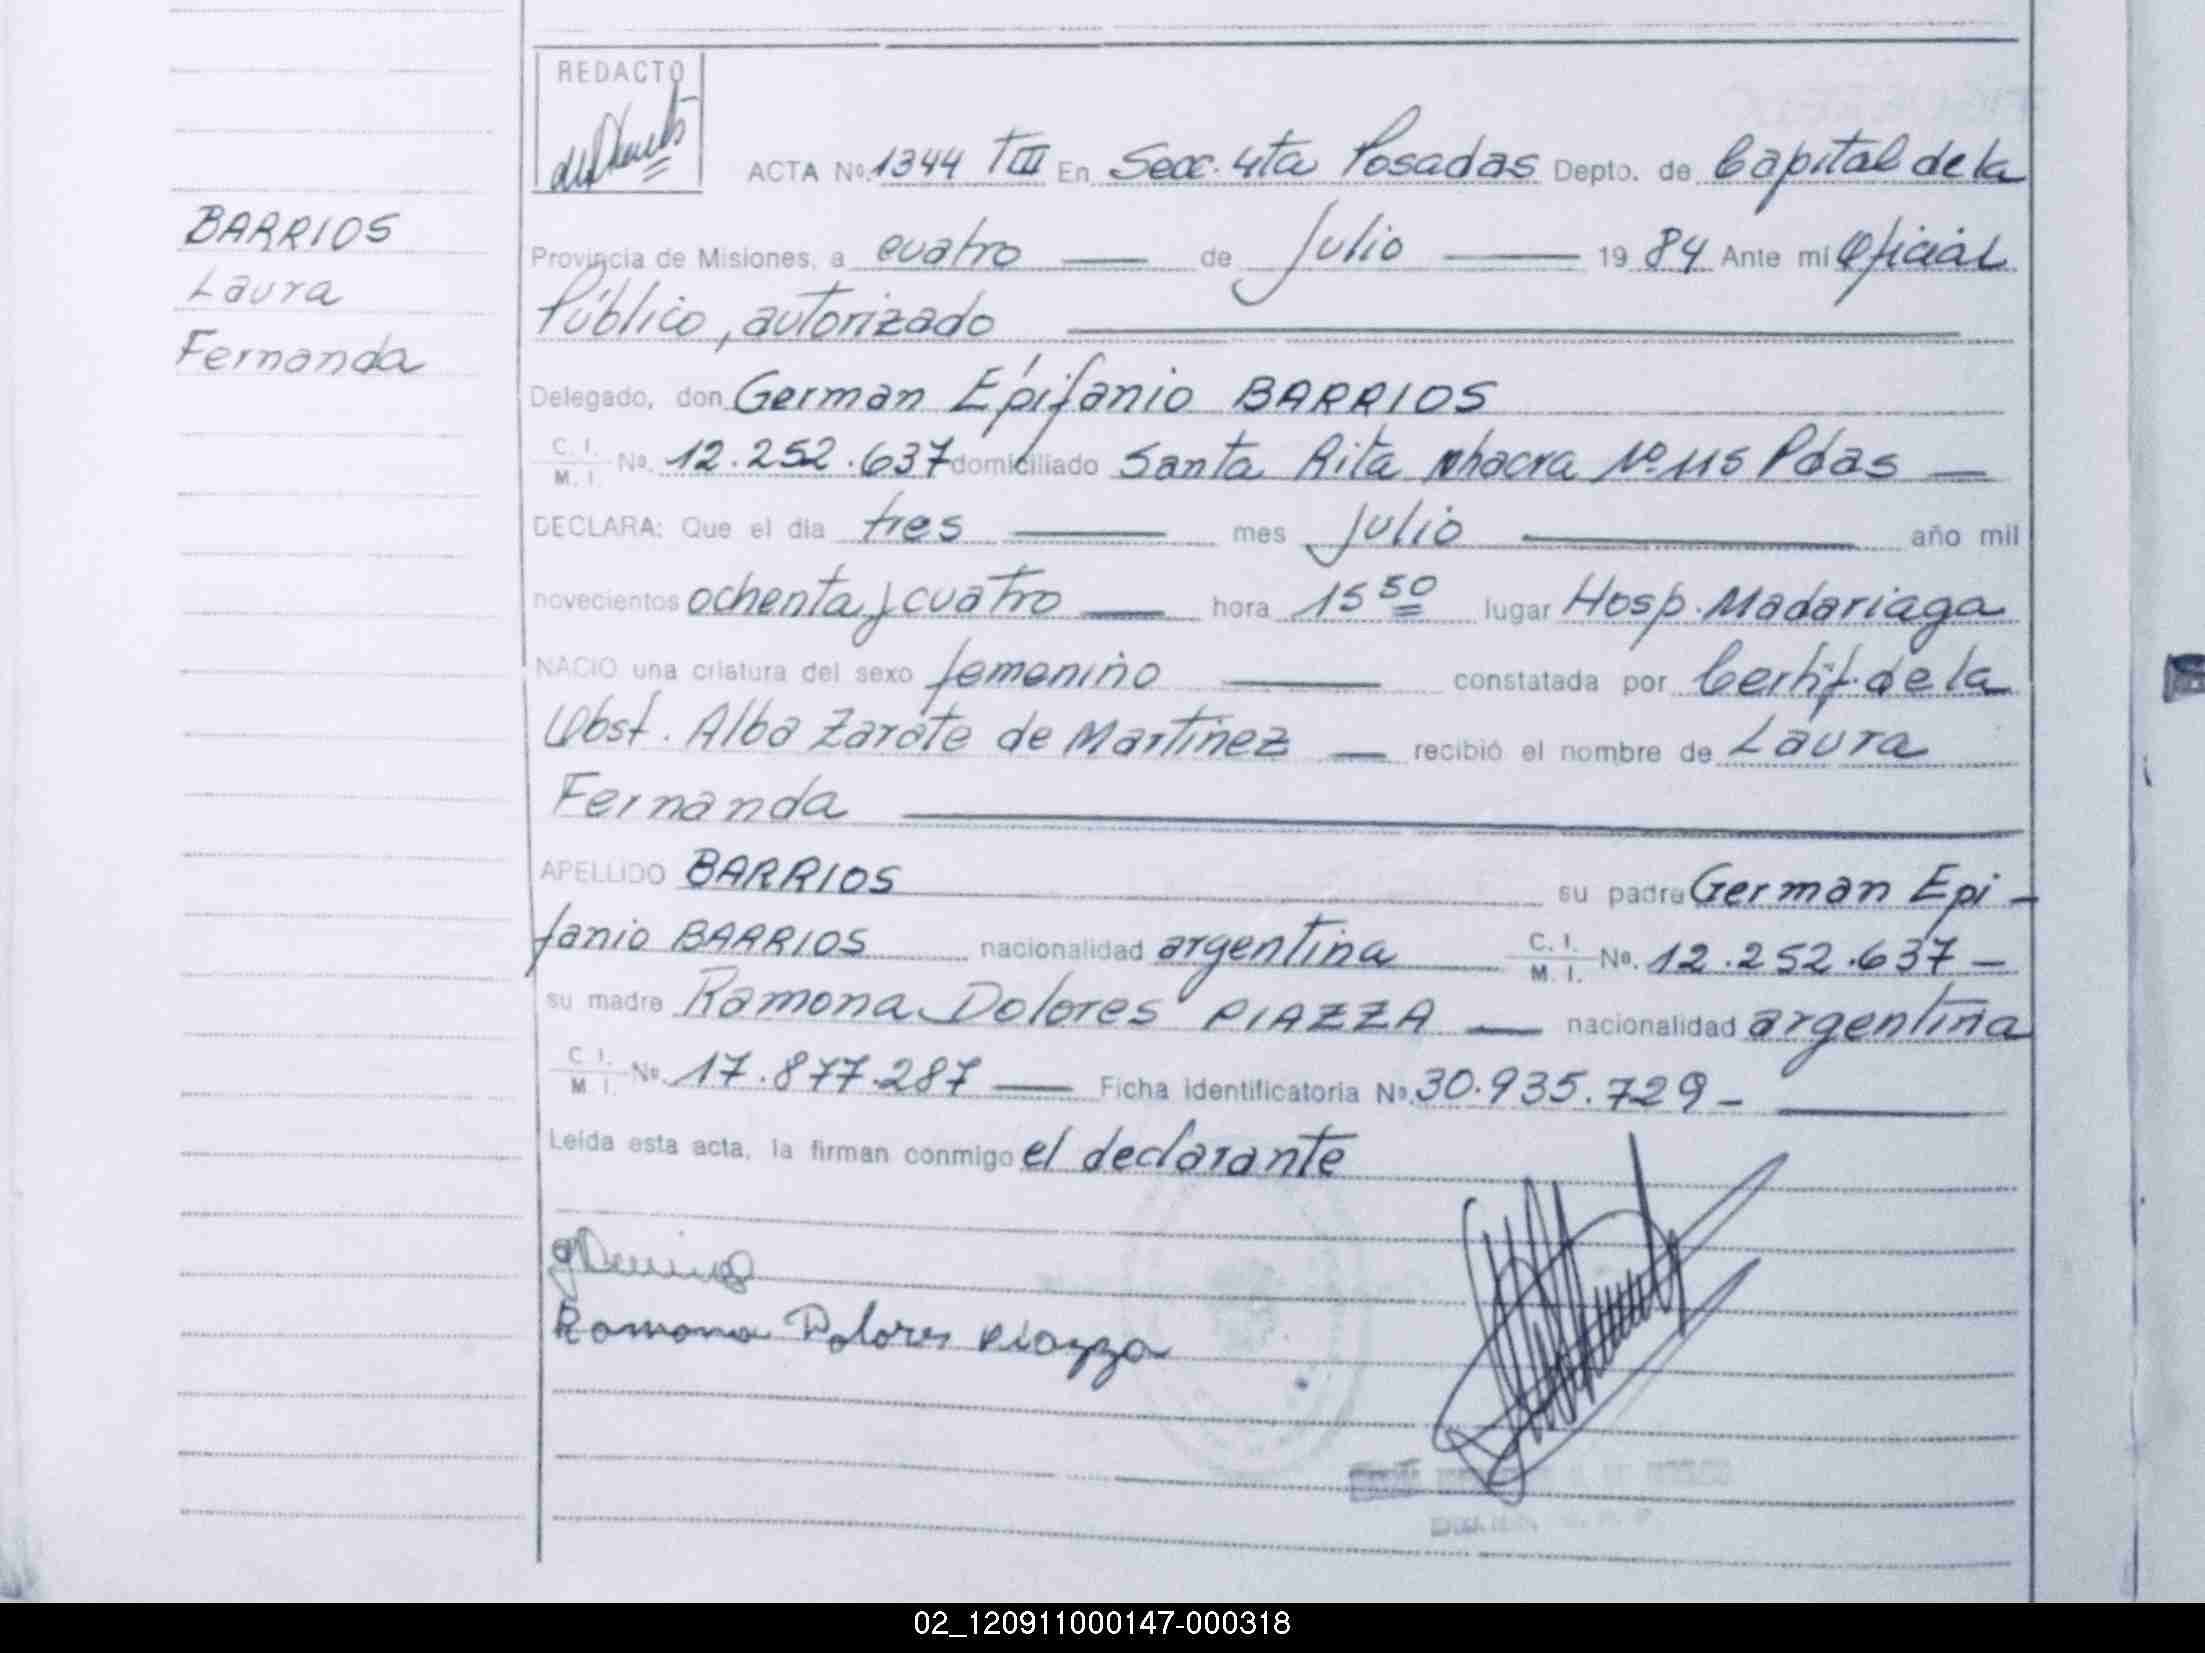 REDACTO
ACTA Nº. 1344 TIII En Secc. 4ta Posadas Depto. de Capital de la
BARRIOS
Laura
Fernanda
Provincia de Misiones, a cuatro de Julio 1984 Ante mí Oficial
Público, autorizado
Delegado, don German Epifanio BARRIOS
C. I. M. I. Nº. 12.252.637 domiciliado Santa Rita chacra Nº 115 Pdas
DECLARA: Que el día tres mes Julio año mil
novecientos ochenta y cuatro hora 15 50 lugar Hosp. Madariaga
NACIO una criatura del sexo femenino constatada por Certif. de la
Obst. Alba Zarate de Martinez recibió el nombre de Laura
Fernanda
APELLIDO BARRIOS su padre German Epi-
fanio BARRIOS nacionalidad argentina C. I. M. I. Nº. 12.252.637-
su madre Ramona Dolores PIAZZA nacionalidad argentina
C. I. M. I. Nº. 17.877.287 Ficha identificatoria Nº. 30.935.729-
Leída esta acta, la firman conmigo el declarante
Ramona Dolores Piazza
02_120911000147-000318